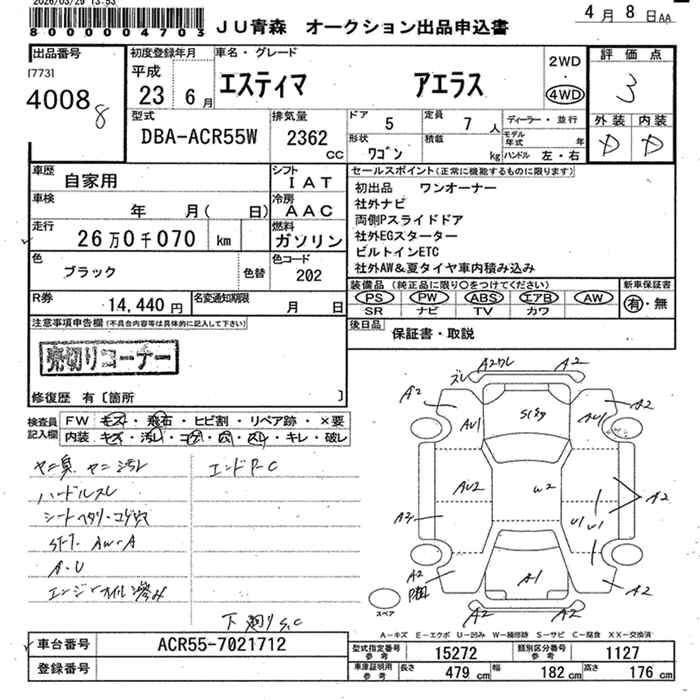 2026/03/29 13:53
8000004703
JU青森 オークション出品申込書
4月8日AA
出品番号
[773]
4008
8
初度登録年月
平成
23 6月
車名・グレード
エスティマ アエラス
2WD
・
4WD
評価点
3
型式
DBA-ACR55W
排気量
2362
CC
ドア 5
定員 7人
形状 ワゴン
積載 kg
ディーラー・並行
モデル年式 年
ハンドル 左・右
外装 内装
D D
車歴 自家用
シフト IAT
車検 年 月( 日)
冷房 AAC
走行 26万0千070 km
燃料 ガソリン
色 ブラック 色替
色コード 202
R券 14,440円
名変通知期限 月 日
セールスポイント(正常に機能するものに限ります)
初出品 ワンオーナー
社外ナビ
両側Pスライドドア
社外EGスターター
ビルトインETC
社外AW&夏タイヤ車内積み込み
装備品(純正品に限り○をつけてください)
PS PW ABS エアB AW
SR ナビ TV カワ
新車保証書
有・無
後日品 保証書・取説
注意事項申告欄(不具合内容等は具体的に記入して下さい)
売切りコーナー
修復歴 有〔箇所 〕
検査員記入欄
FW キズ・飛石・ヒビ割・リペア跡・×要
内装 キズ・汚レ・コゲ・穴・スレ・キレ・破レ
ヤニ臭 ヤニ汚レ
エンドP-C
ハンドルスレ
シートヘタリ・コゲ穴
AW-A
A-U
エンジンオイル滲み
下廻りS.C
ズレ A2ワレ A2
A2 A2
AU1 AU1
AU2 W2
A2 U1 W1 A2
A2 A1 A2
A2 A2
スペア
A-キズ E-エクボ U-凹み W-補修跡 S-サビ C-腐食 XX-交換済
車台番号 ACR55-7021712
登録番号
型式指定番号 参考 15272
類別区分番号 参考 1127
車庫証明用 参考 長さ 479cm 幅 182cm 高さ 176cm